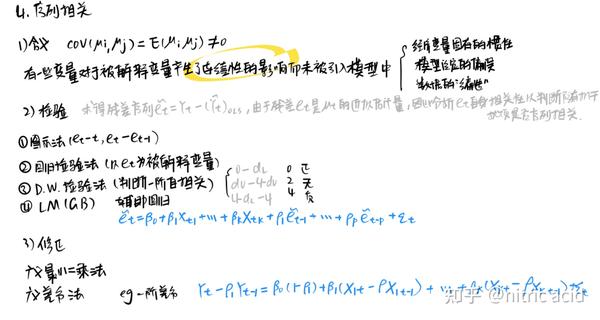 4. 序列相关
1) 含义 COV(μi,μj) = E(μi μj) ≠ 0
有一些变量对于被解释变量产生了连续性的影响而未被引入模型中
经济变量固有的惯性
模型设定的偏误
数据的"编造"
2) 检验 求得残差序列ẽt = Yt - (Ŷt)OLS, 由于残差et是μt的近似估计量, 因以分析et自身相关性以判断随机干
扰项是否序列相关.
①图示法(et-t, et-et-1)
②回归检验法(以et为被解释变量)
③ D.W.检验法(判断一阶自相关)
0-dL 0 正
dU-4-dU 2 无
4-dL-4 4 负
④ LM (GB) 辅助回归
ẽt = β0+β1Xt1+…+βkXtk+ρ1ẽt-1+…+ρpẽt-p+εt
3) 修正
广义最小二乘法
广义差分法 eg 一阶差分 Yt-ρ1Yt-1 = β0(1-ρ1)+β1(X1t-ρX1t-1)+…+βk(Xkt-ρXkt-1)+εt
知乎 @nitricacid